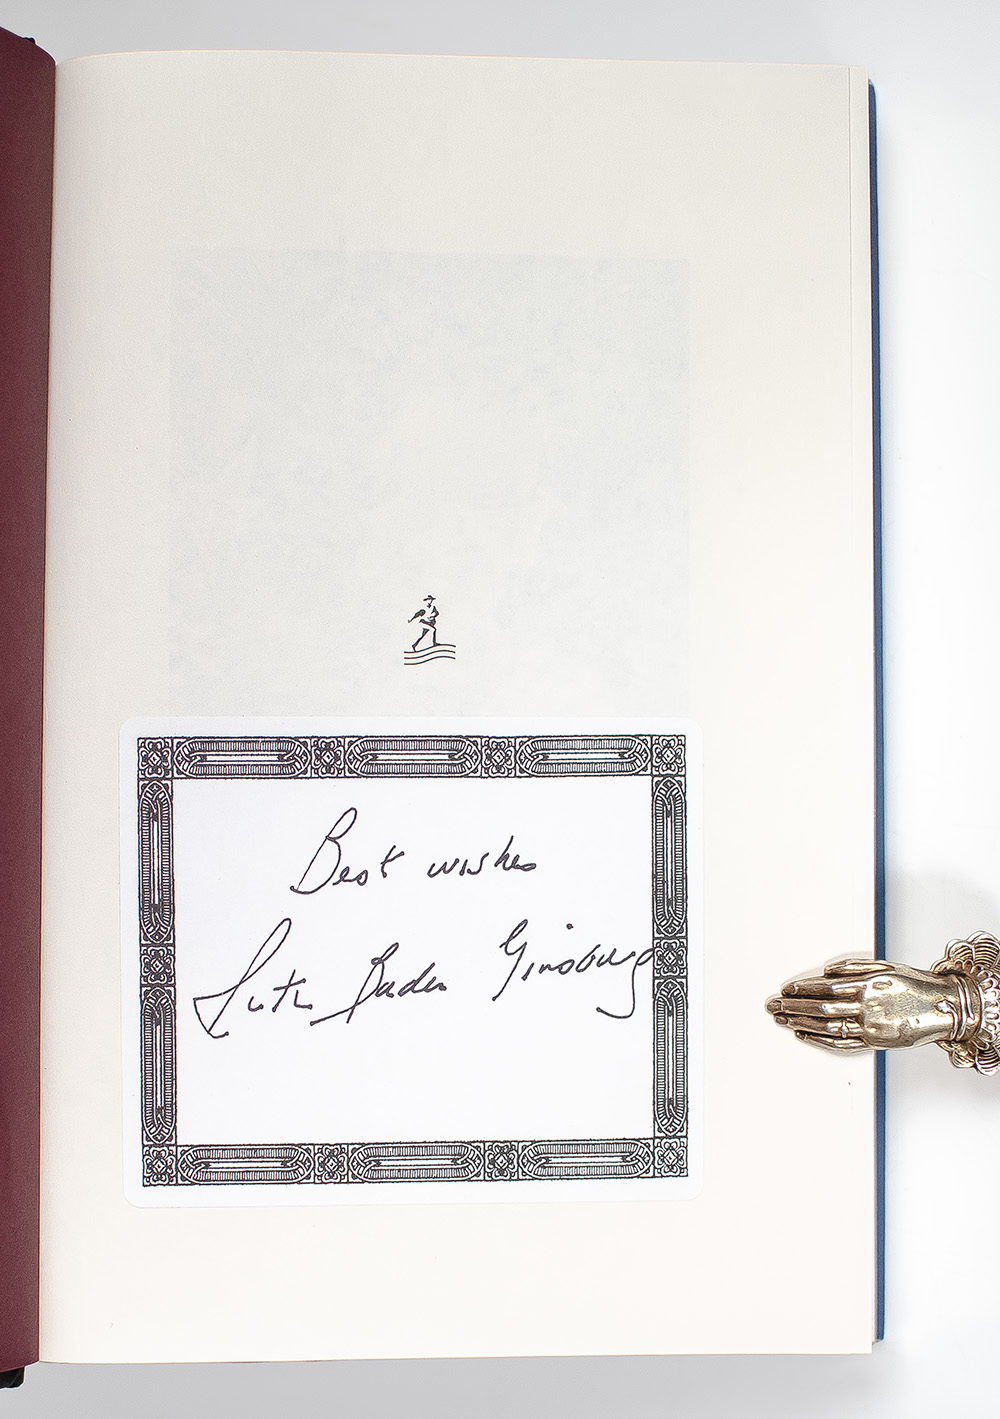 Best wishes
Ruth Bader Ginsburg